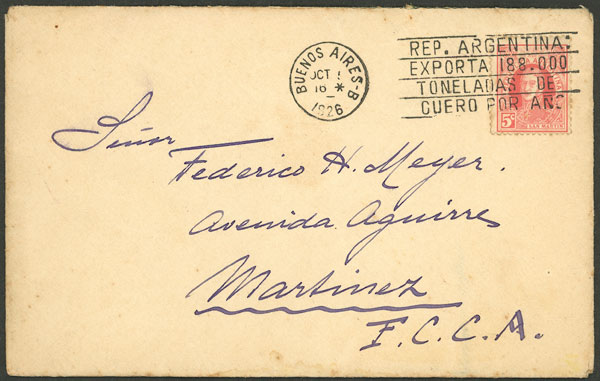 BUENOS AIRES-B
OCT
16 *
1926
REP. ARGENTINA:
EXPORTA 188.000
TONELADAS DE
CUERO POR AÑO
5c
SAN MARTIN
Señor
Federico H. Meyer.
Avenida Aguirre
Martinez
F.C.C.A.